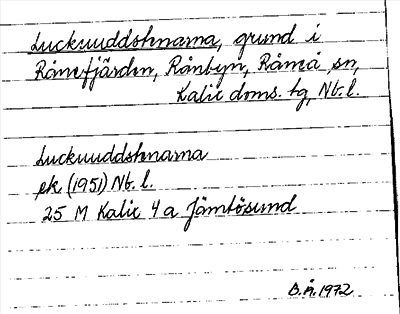 Luckuuddstenarna, grund i
Rånefjärden, Rånbyn, Råneå sn,
Kalix doms. tg, Nb. l.
Luckuuddstenarna
ek (1951) Nb. l.
25 M Kalix 4 a Jämtösund
B. Å. 1972